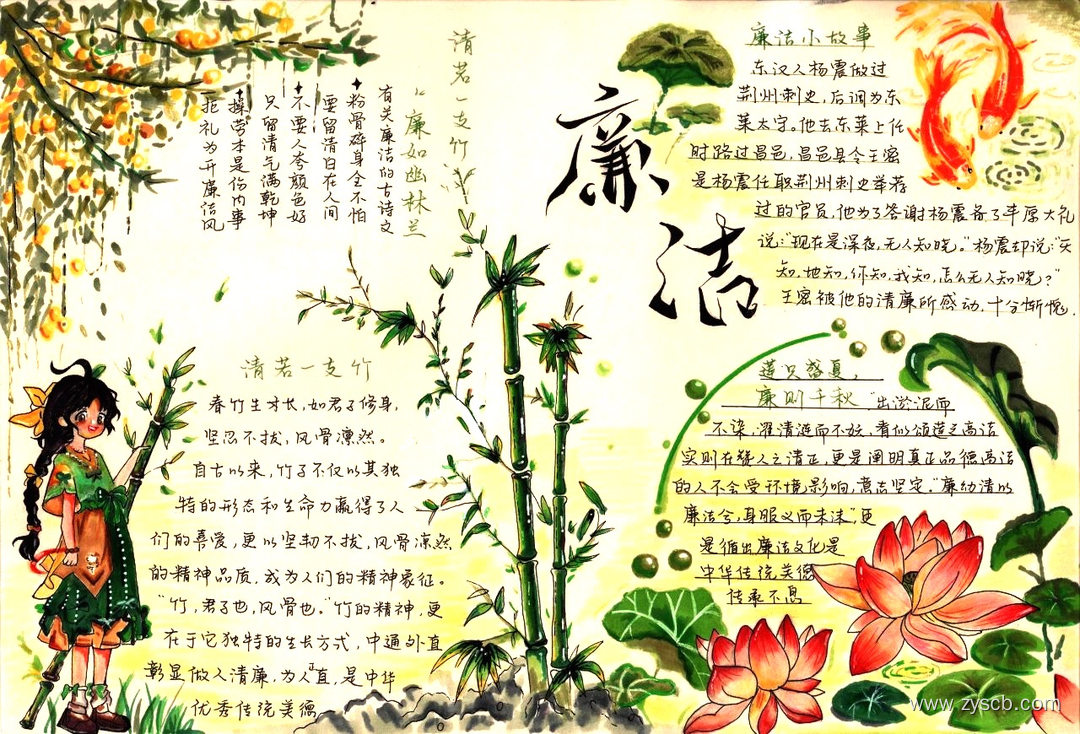 清若一支竹
廉如幽林兰
有关廉洁的古诗文
粉骨碎身全不怕
要留清白在人间
不要人夸颜色好
只留清气满乾坤
操劳本是份内事
拒礼为开廉洁风
廉洁
廉洁小故事
东汉人杨震做过
荆州刺史，后调为东
莱太守。他去东莱上任
时路过昌邑，昌邑县令王密
是杨震任职荆州刺史举荐
过的官员，他为了答谢杨震备了丰厚大礼
说：“现在是深夜，无人知晓。”杨震却说：“天
知，地知，你知，我知，怎么无人知晓？”
王密被他的清廉所感动，十分惭愧.
清若一支竹
春竹生才长，如君子修身，
坚忍不拔，风骨凛然。
自古以来，竹子不仅以其独
特的形态和生命力赢得了人
们的喜爱，更以坚韧不拔，风骨凛然
的精神品质，成为人们的精神象征。
“竹，君子也，风骨也。”竹的精神，更
在于它独特的生长方式，中通外直
彰显做人清廉，为人正直，是中华
优秀传统美德
莲只盛夏，
廉则千秋
出淤泥而
不染，濯清涟而不妖，看似颂莲之高洁
实则在赞人之清正，更是阐明真正品德高洁
的人不会受环境影响，意志坚定。“廉幼清以
廉洁兮，身服义而未沫”，更
是循出廉洁文化是
中华传统美德
传承不息
www.zyscb.com